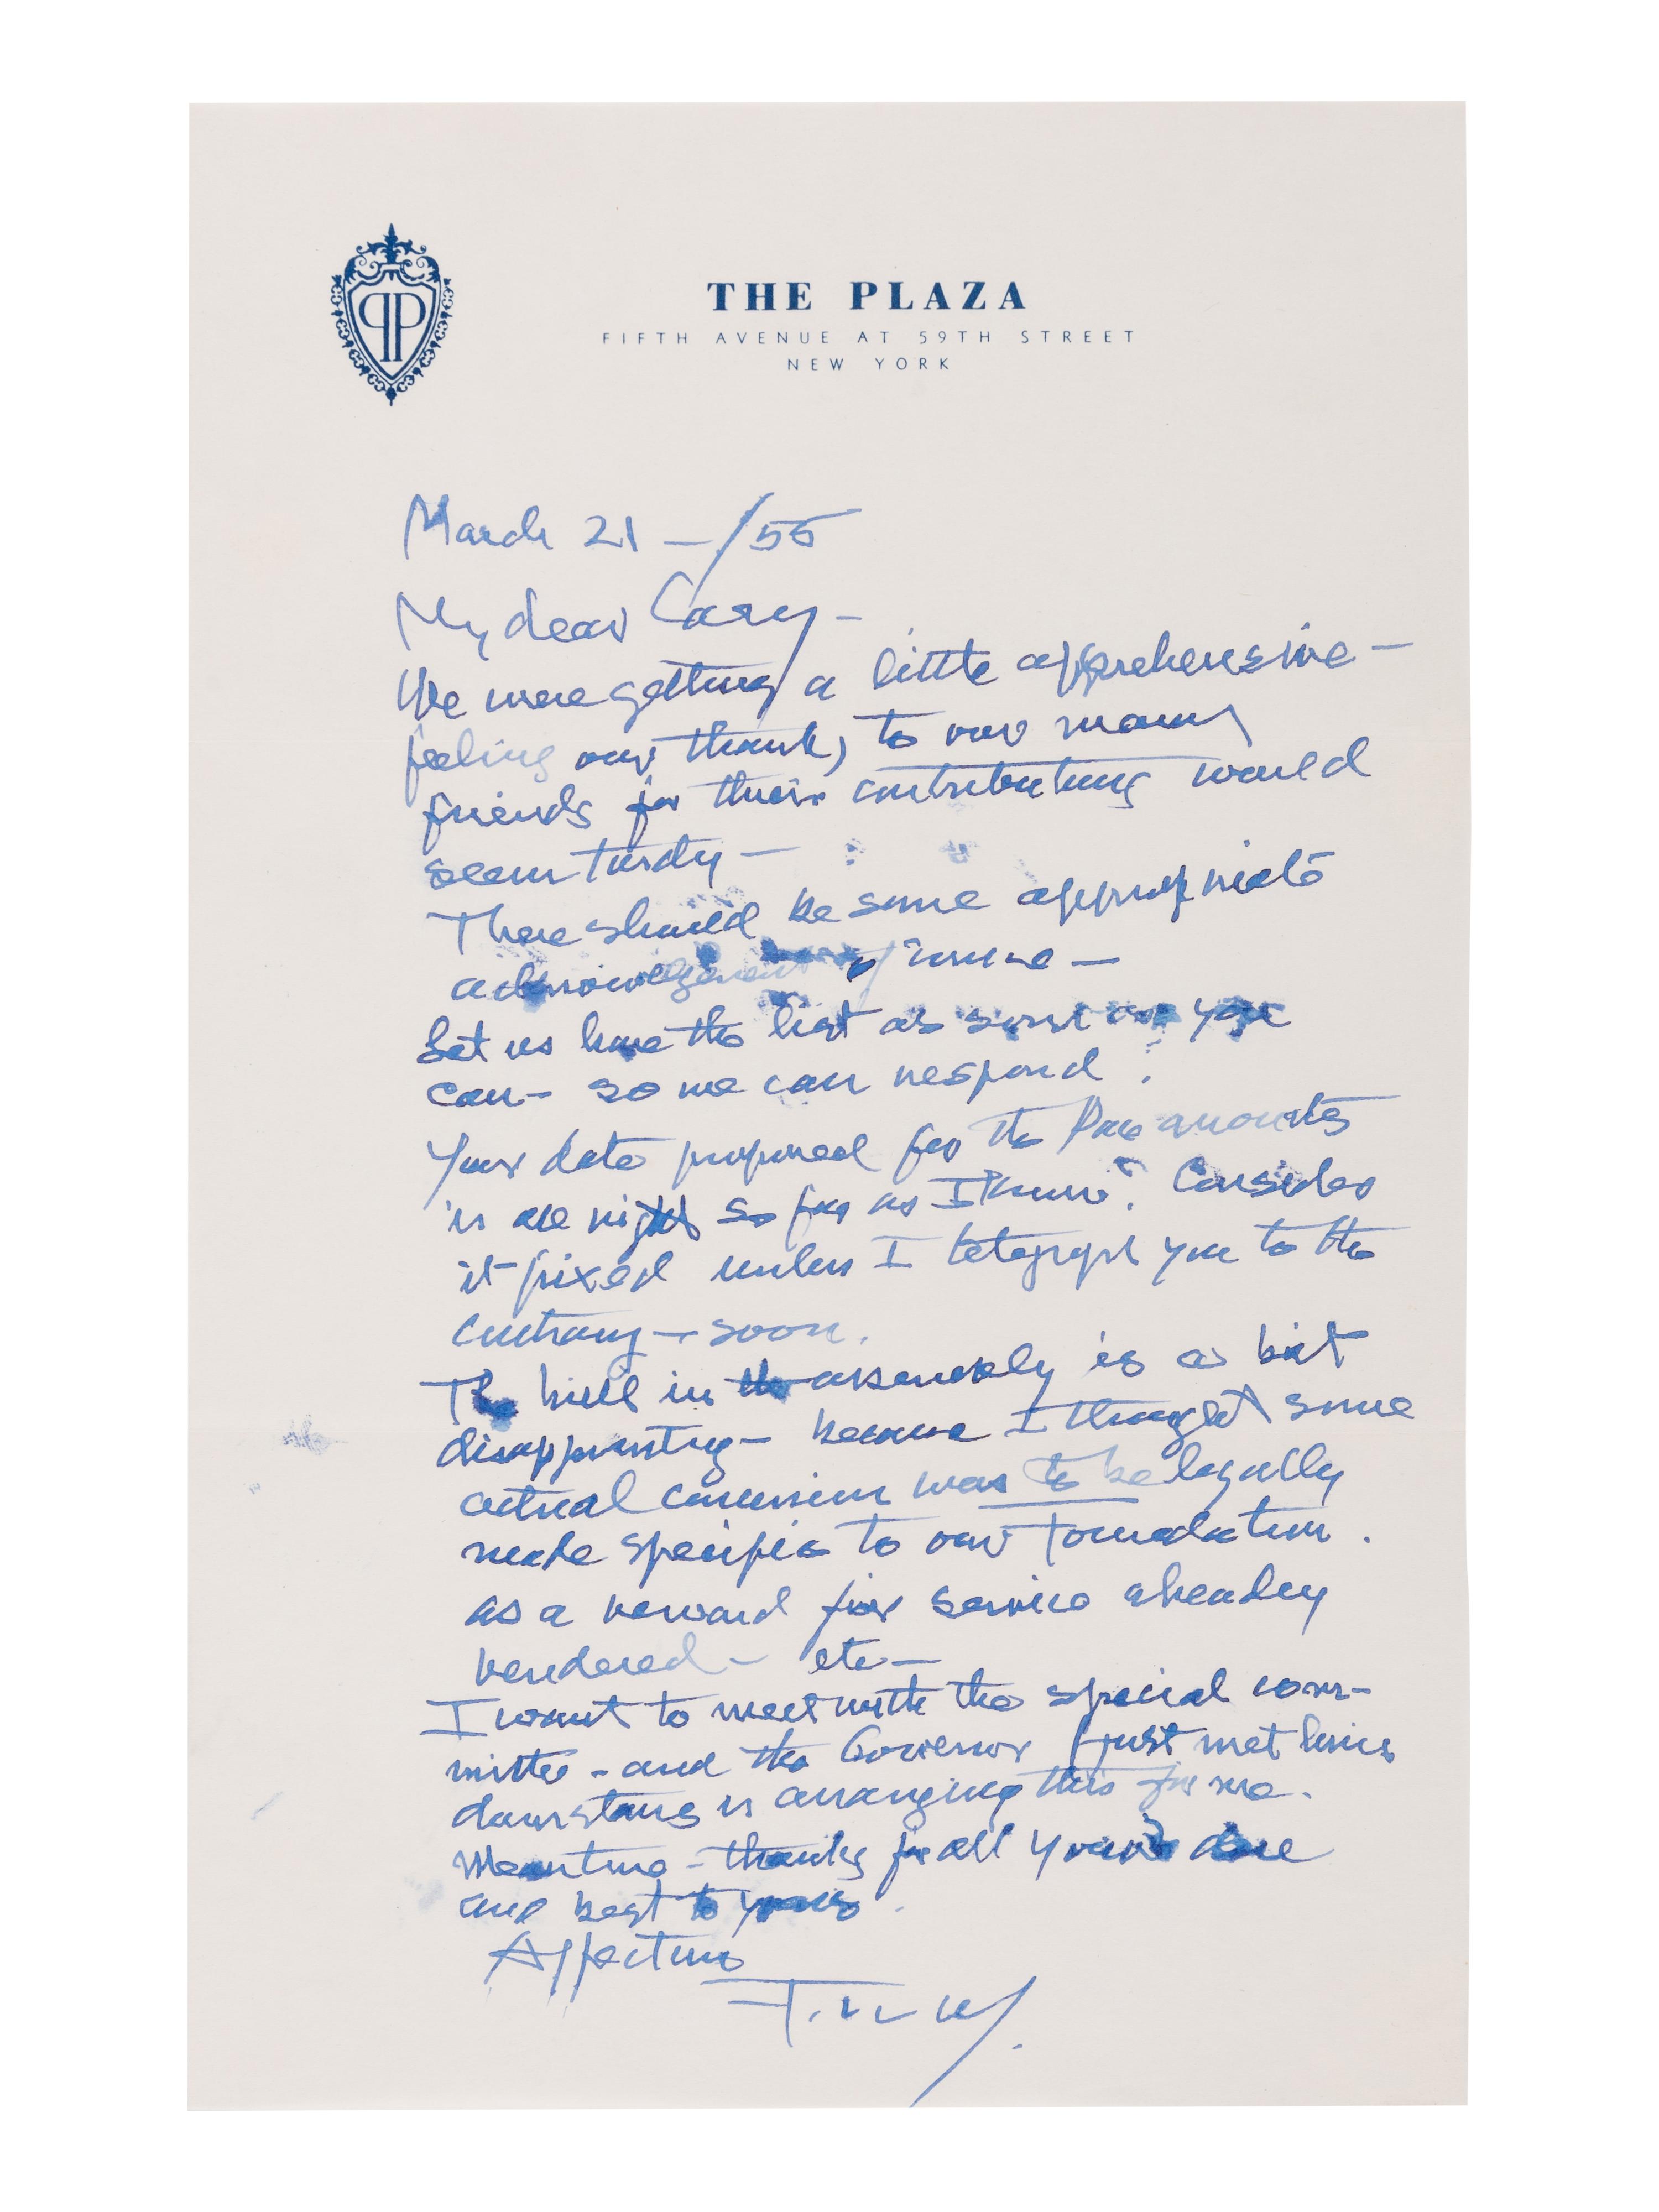 PP
THE PLAZA
FIFTH AVENUE AT 59TH STREET
NEW YORK
March 21 – /55
My dear Cary –
We were getting a little apprehensive –
feeling our thanks to our many
friends for their contributing would
seem tardy –
There should be some appropriate
acknowledgement of
Let us have the list as soon as you
can – so we can respond.
Your date proposed for the Paramounts
is all right so far as I know. Consider
it fixed unless I telegraph you to the
contrary – soon.
The bill in the assembly is a bit
disappointing – because I thought some
actual concession was to be legally
made specific to our Foundation.
as a reward for service already
rendered – etc –
I want to meet with the special com-
mittee – and the Governor (just met him
downstairs is arranging this for me.
Meantime – thanks for all you've done
and best to yours.
Affection
F.LL.W.